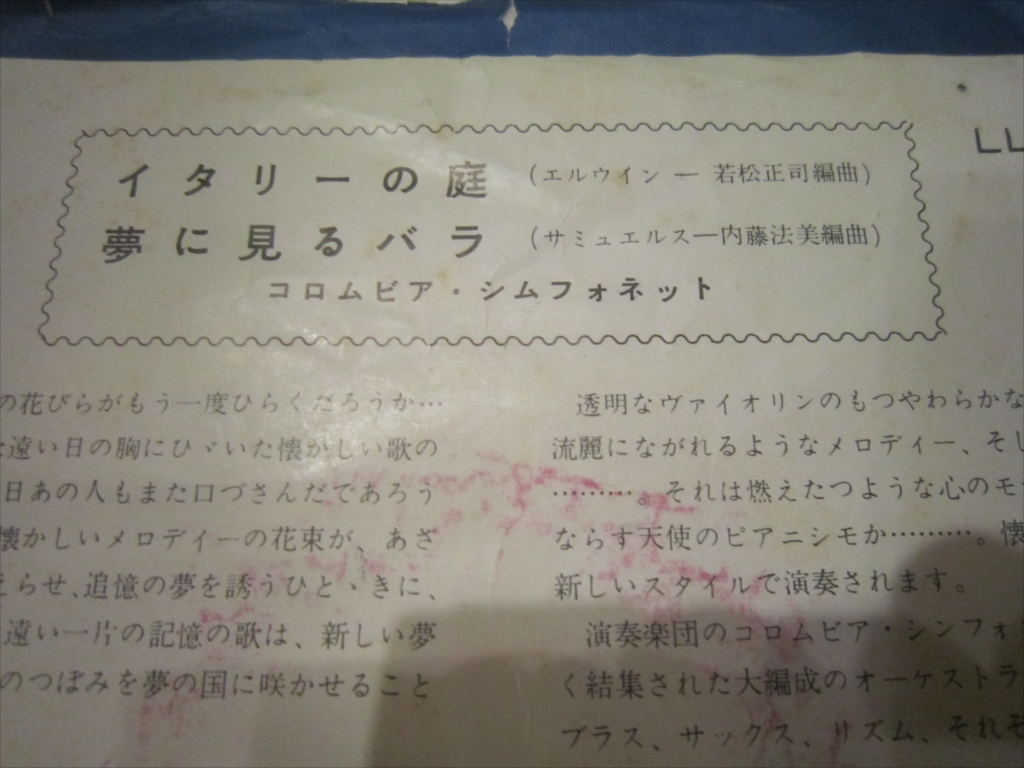 イタリーの庭 (エルウイン — 若松正司編曲)
夢に見るバラ (サミュエルス—内藤法美編曲)
コロムビア・シムフォネット
LL
の花びらがもう一度ひらくだろうか…
遠い日の胸にひゞいた懐かしい歌の
日あの人もまた口づさんだであろう
懐かしいメロディーの花束が、あざ
らせ、追憶の夢を誘うひとゝきに、
遠い一片の記憶の歌は、新しい夢
のつぼみを夢の国に咲かせること
透明なヴァイオリンのもつやわらかな
流麗にながれるようなメロディー、そし
………。それは燃えたつような心のモ
ならす天使のピアニシモか………。懐
新しいスタイルで演奏されます。
演奏楽団のコロムビア・シンフォ
く結集された大編成のオーケストラ
ブラス、サックス、リズム、それぞ